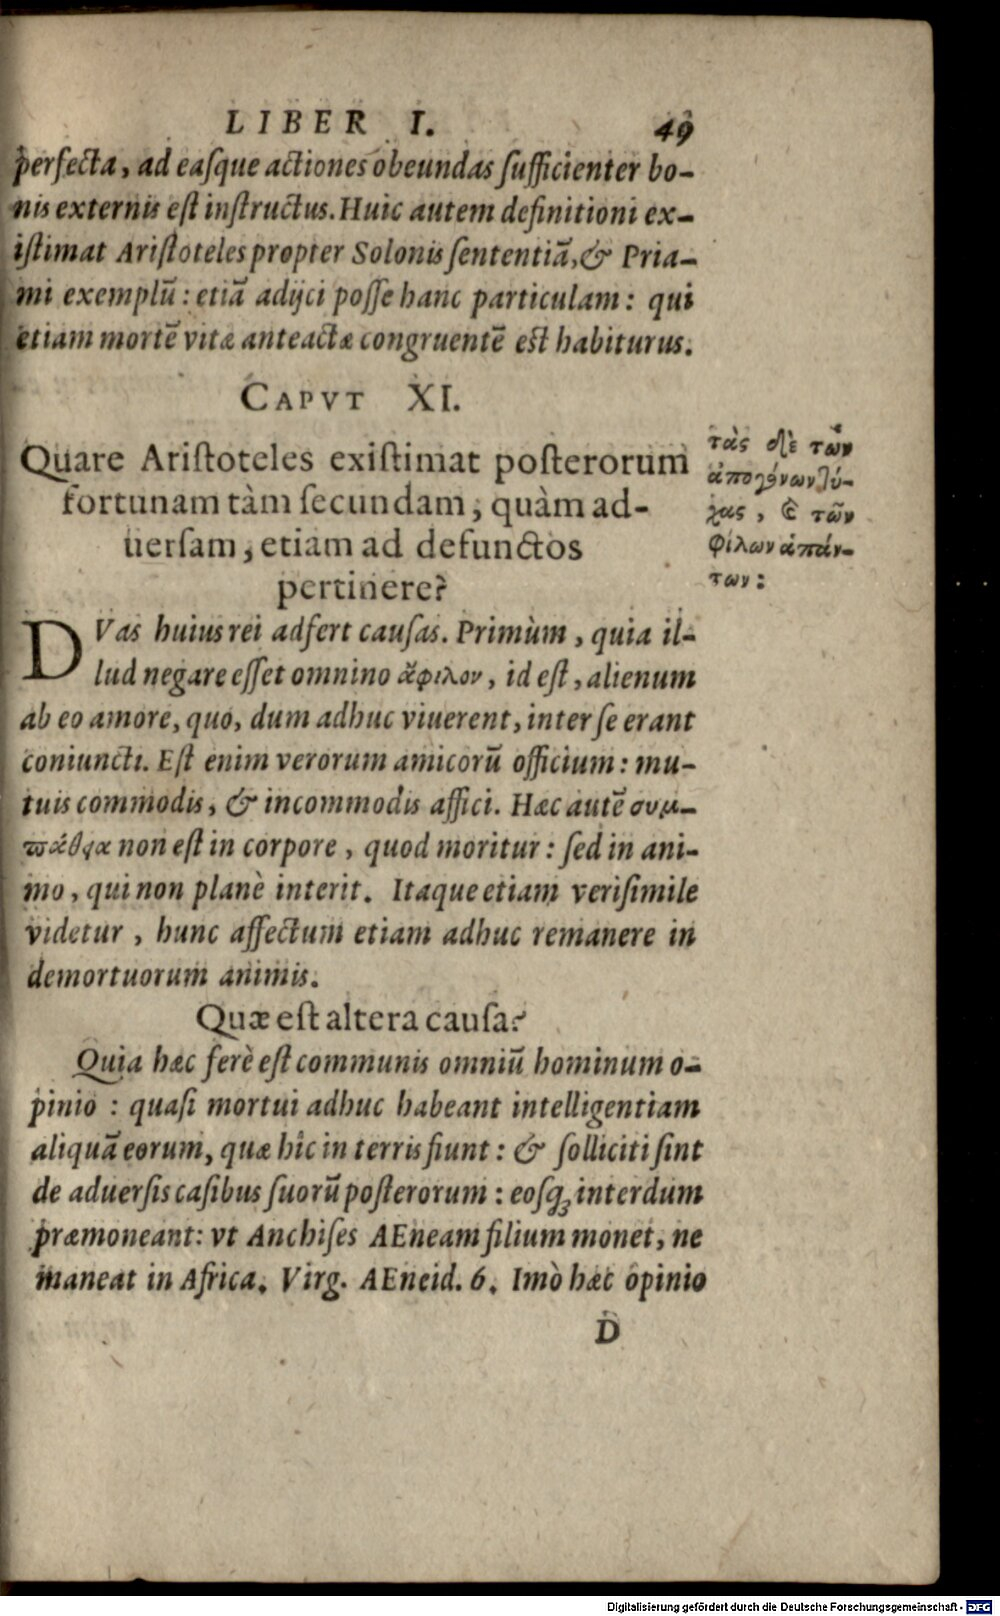 LIBER I. 49
perfecta, ad easque actiones obeundas sufficienter bo-
nis externis est instructus. Huic autem definitioni ex-
istimat Aristoteles propter Solonis sententiā, & Pria-
mi exemplū: etiā adijci posse hanc particulam: qui
etiam mortē vitæ anteactæ congruentē est habiturus.
CAPVT XI.
Quare Aristoteles existimat posterorum
fortunam tàm secundam, quàm ad-
uersam, etiam ad defunctos
pertinere?
τὰς δὲ τῶν
ἀπογόνων τύ-
χας, καὶ τῶν
φίλων ἁπάν-
των:
DVas huius rei adfert causas. Primùm, quia il-
lud negare esset omnino ἄφιλον, id est, alienum
ab eo amore, quo, dum adhuc viuerent, inter se erant
coniuncti. Est enim verorum amicorū officium: mu-
tuis commodis, & incommodis affici. Hæc autē συμ-
πάθεια non est in corpore, quod moritur: sed in ani-
mo, qui non planè interit. Itaque etiam verisimile
videtur, hunc affectum etiam adhuc remanere in
demortuorum animis.
Quæ est altera causa?
Quia hæc ferè est communis omniū hominum o-
pinio: quasi mortui adhuc habeant intelligentiam
aliquā eorum, quæ hîc in terris fiunt: & solliciti sint
de aduersis casibus suorū posterorum: eosq; interdum
præmoneant: vt Anchises AEneam filium monet, ne
maneat in Africa. Virg. AEneid. 6. Imò hæc opinio
D
Digitalisierung gefördert durch die Deutsche Forschungsgemeinschaft - DFG